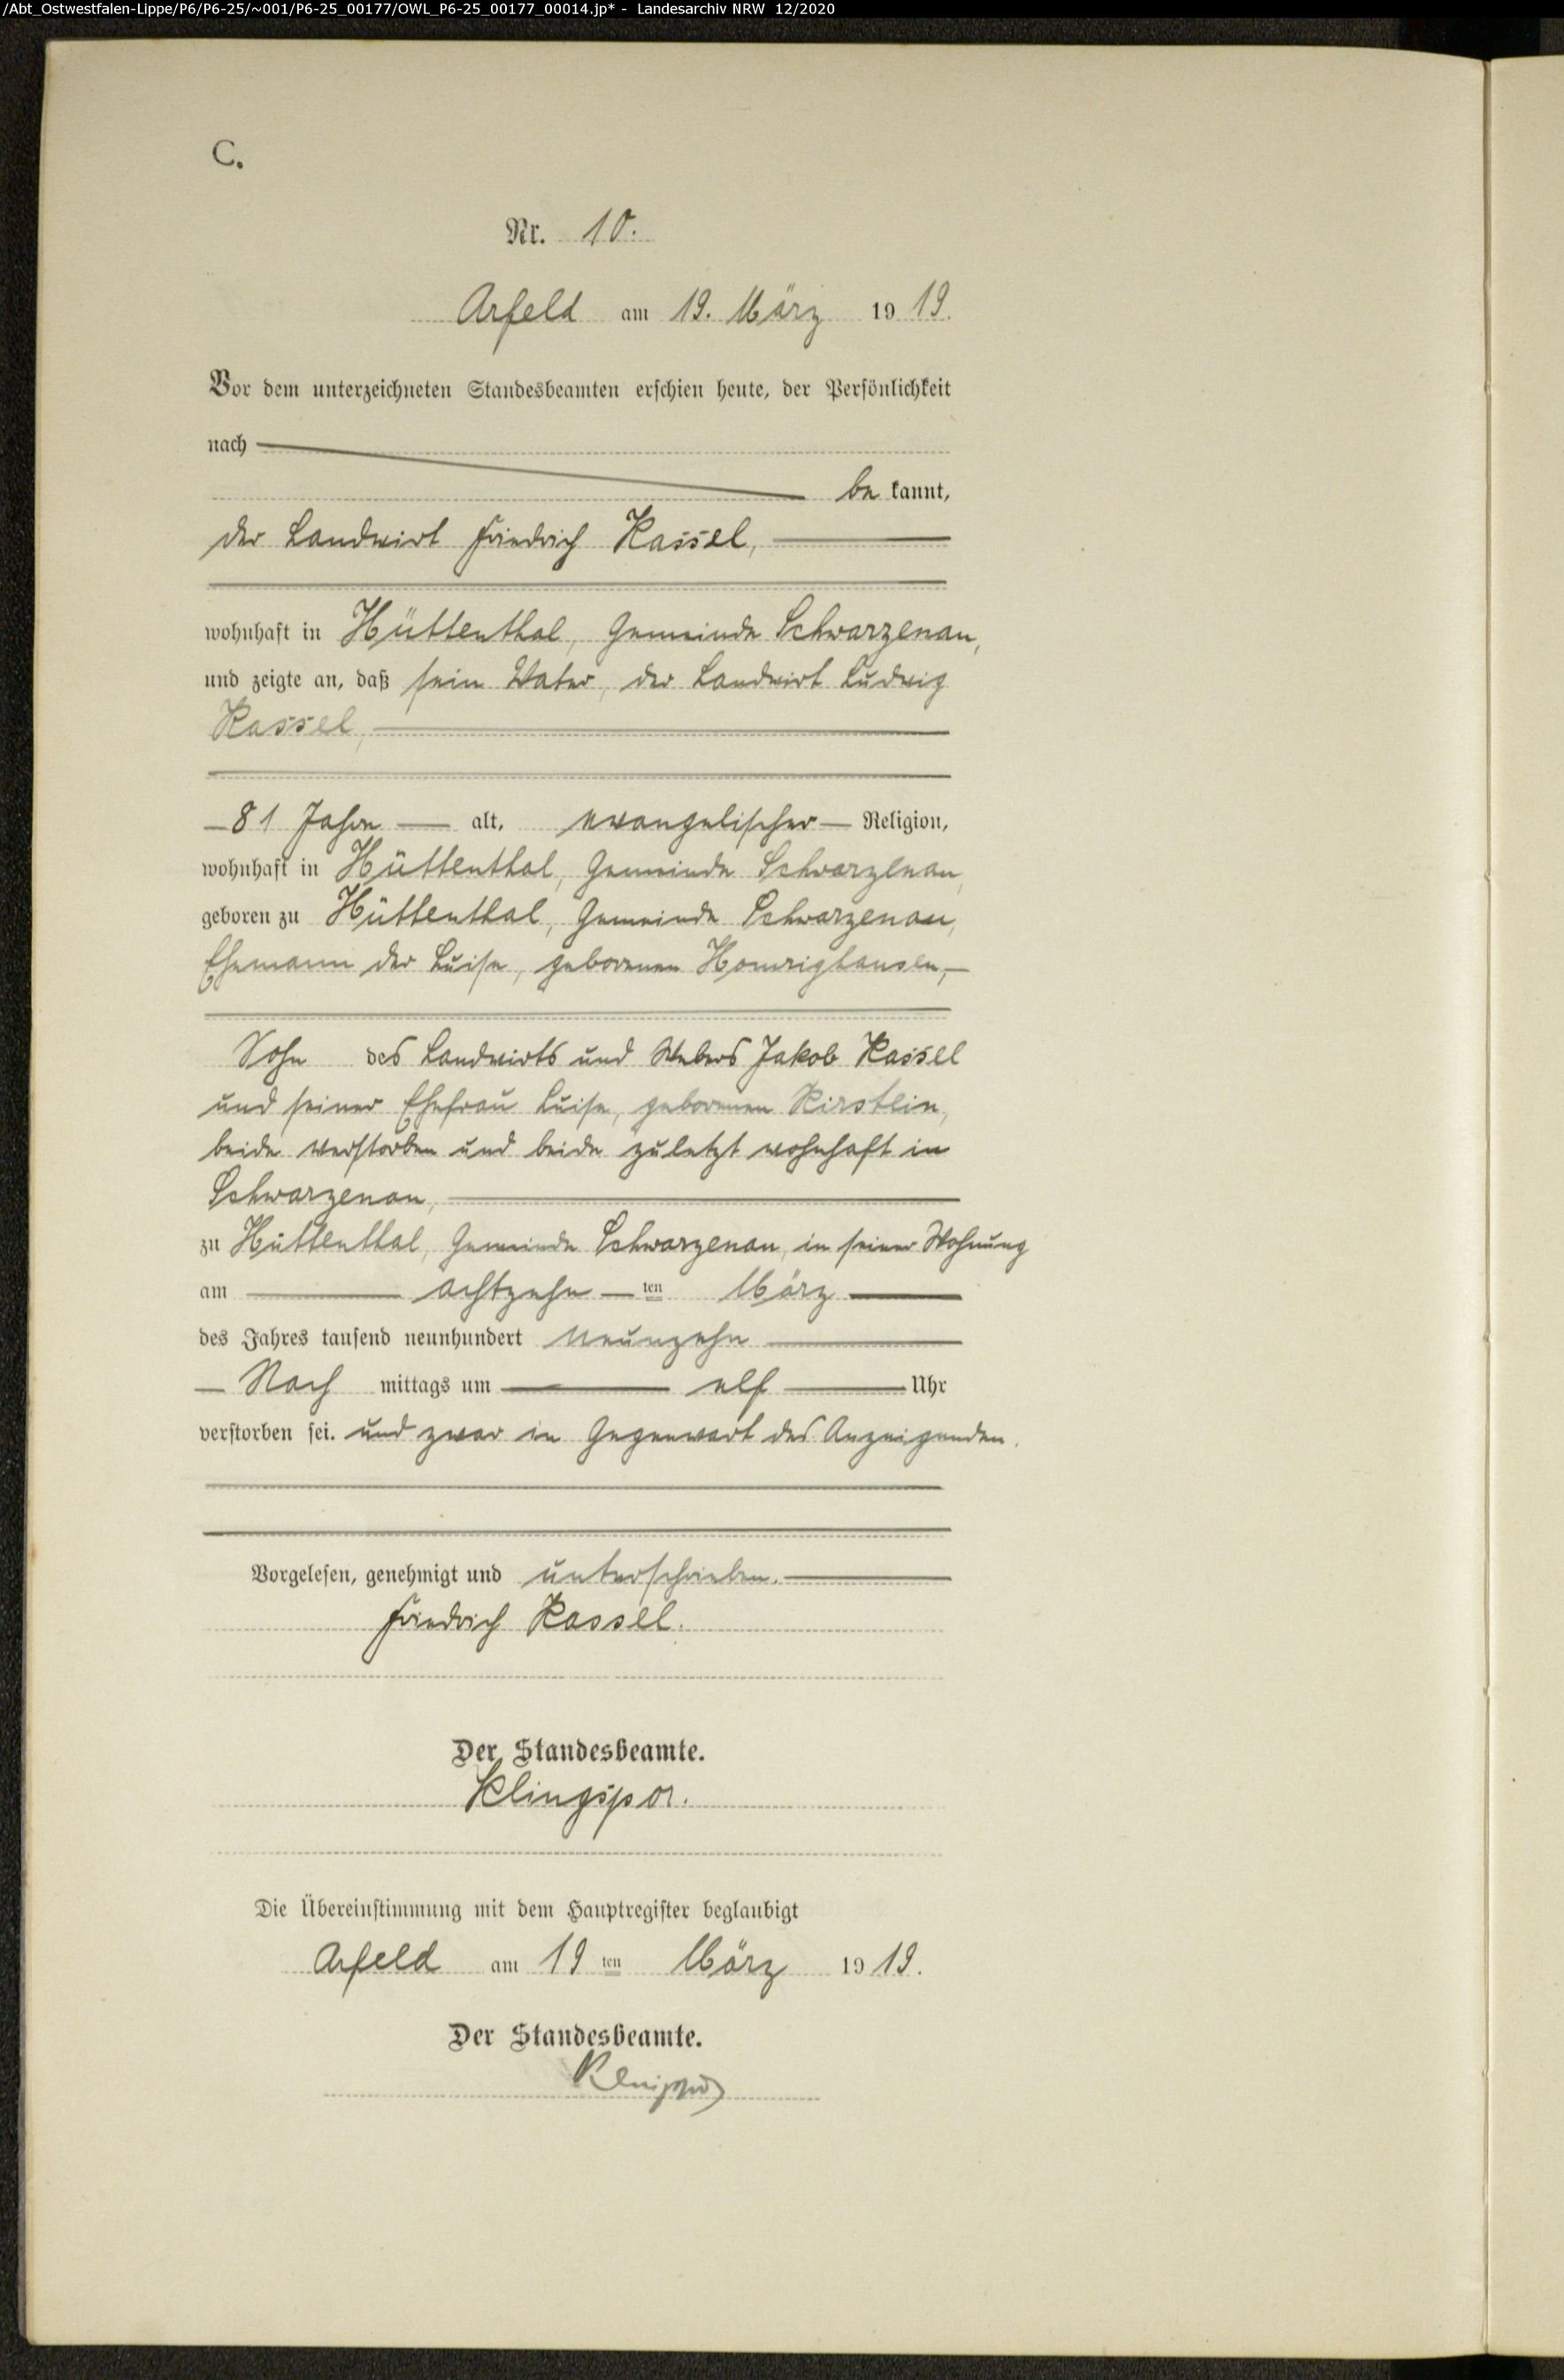 /Abt_Ostwestfalen-Lippe/P6/P6-25/~001/P6-25_00177/OWL_P6-25_00177_00014.jp* - Landesarchiv NRW 12/2020
C.
Nr. 10.
Arfeld am 19. März 1919.
Vor dem unterzeichneten Standesbeamten erschien heute, der Persönlichkeit
nach
be kannt,
der Landwirt Friedrich Kassel,
wohnhaft in Hüttenthal, Gemeinde Schwarzenau,
und zeigte an, daß sein Vater, der Landwirt Ludwig
Kassel,
81 Jahre alt, evangelischer Religion,
wohnhaft in Hüttenthal, Gemeinde Schwarzenau,
geboren zu Hüttenthal, Gemeinde Schwarzenau,
Ehemann der Luise, geborenen Homrighausen,
Sohn des Landwirts und Webers Jakob Kassel
und seiner Ehefrau Luise, geborenen Kirstein,
beide verstorben und beide zuletzt wohnhaft in
Schwarzenau,
zu Hüttenthal, Gemeinde Schwarzenau, in seiner Wohnung
am achtzehn ten März
des Jahres tausend neunhundert neunzehn
Nach mittags um elf Uhr
verstorben sei. und zwar in Gegenwart des Anzeigenden.
Vorgelesen, genehmigt und unterschrieben.
Friedrich Kassel.
Der Standesbeamte.
Klingspor.
Die Übereinstimmung mit dem Hauptregister beglaubigt
Arfeld am 19 ten März 1919.
Der Standesbeamte.
Klingspor